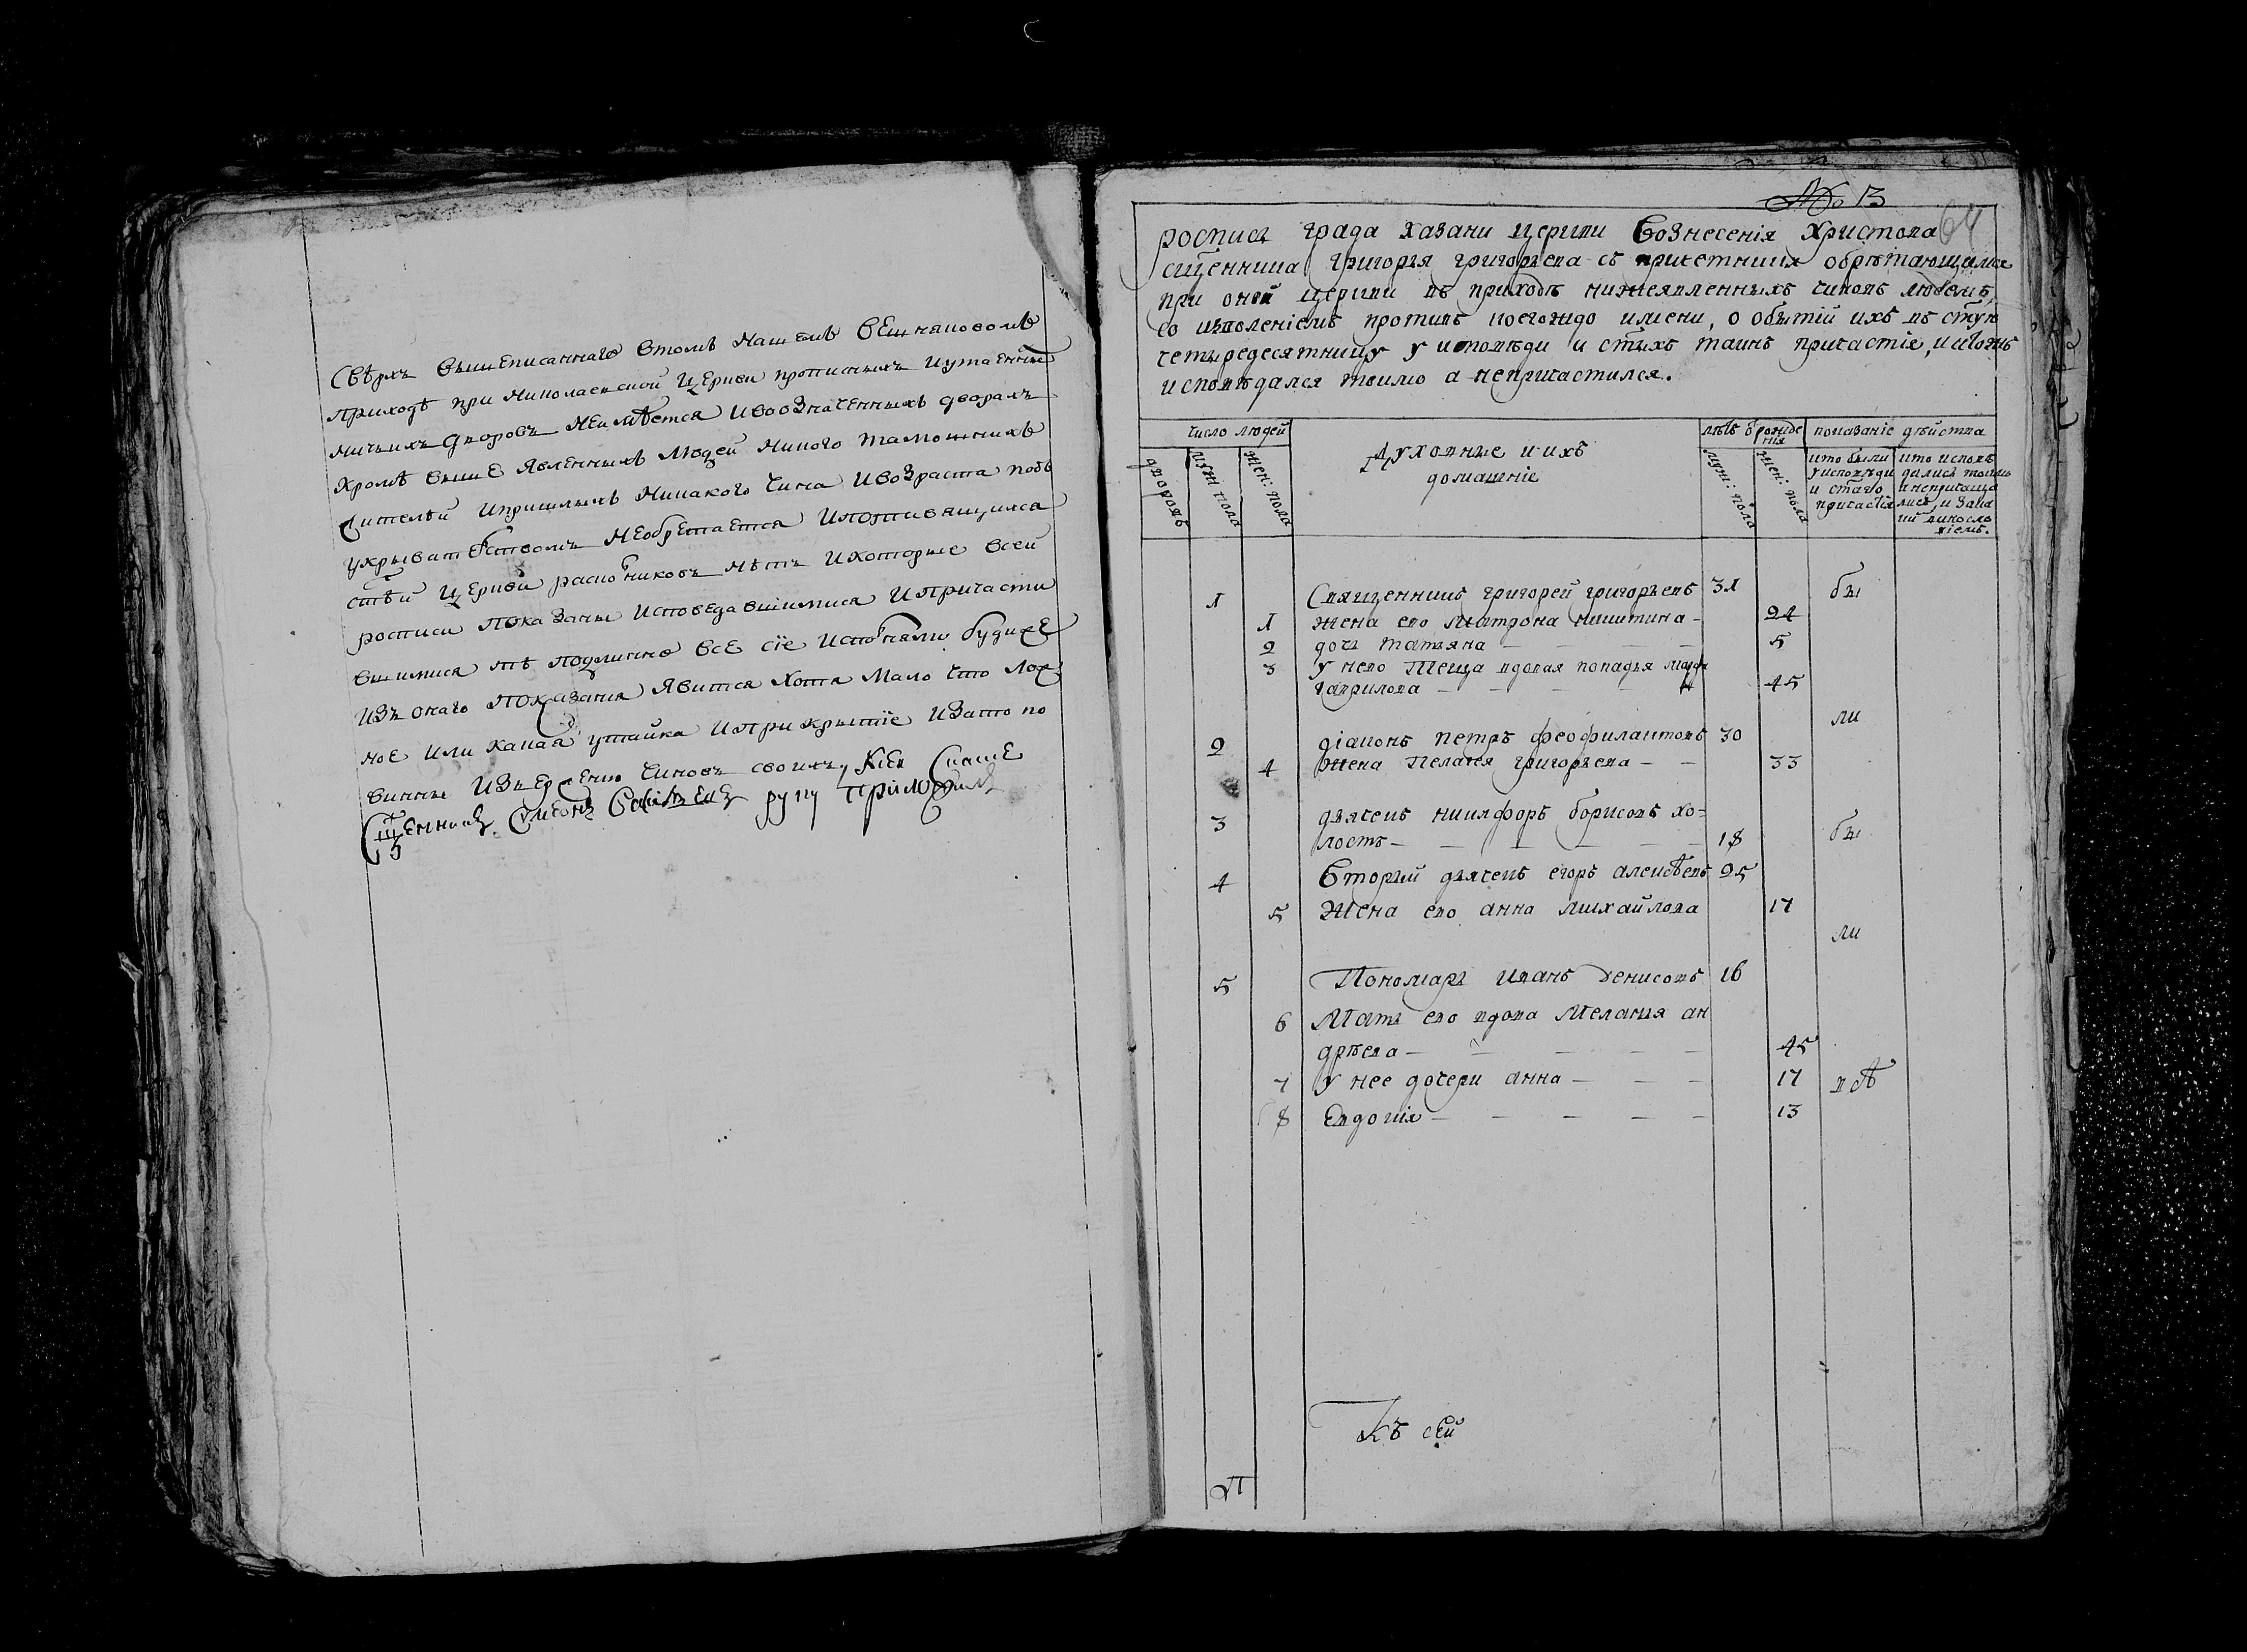 Свѣрхъ вышеписаннаго втомъ нашемъ вешняповомъ
приходѣ при николаевской церкви прописныхъ иутаенны
ничьихъ дворовъ неимѣется ивоозначенныхъ дворахъ
кромѣ выше явленныхъ людей никого тамошнихъ
жителѣй ипришлымъ никакого чина ивозраста подъ
укрывательствомъ необретается ипотпивящихся
стѣй церкви расколниковъ нѣтъ икоторые всей
росписи показаны исповедавшимися ипричасти
вшимися тѣ подлинно все сіе исполняли будиже
изъ онаго показания явится хотя мало что лож
ное или какая утайка иприкрытіе изато по
винны извержению чиновъ своихъ
Сщенникъ Симеонъ руку приложилъ
№ 13
64
роспись града казани церкви Вознесенія Христова
сщенника григорья григорьева съ причетники обрѣтающимся
при оной церкви въ приходѣ нижеявленныхъ чиновъ людемъ,
со изъявленіемъ противъ коегождо имени, о бытіи ихъ въ стую
четыредесятницу у исповѣди и стыхъ таинъ причастія, и ктожъ
исповѣдался токмо а непричастился.
число людей
лѣтъ ѿ рожде
нія
показаніе дѣйства
дворовъ
муж: пола
жен: пола
Духовные и ихъ
домашніе
муж: пола
жен: пола
кто были
у исповѣди
и стаго
причастія
кто исповѣ
дались токмо
а непричаща
лись, и за ка
кимъ винословіемъ.
1 Священникъ григорей григорьевъ 31 бы
1 жена ево матрона никитина 24
2 дочь татьяна 5
3 у нево теща вдовая попадья марфа
гаврилова 45
ли
2 діаконъ петръ феофилактовъ 30
4 жена пелагея григорьева 33
3 дьячекъ никифоръ борисовъ хо=
лостъ 18 бы
4 вторый дьячекъ егоръ алексѣевъ 25
5 жена ево анна михайлова 17
ли
5 Пономарь иванъ денисовъ 16
6 Мать ево вдова меланья ан
дрѣева 45
7 у нее дочери анна 17 всѣ
8 Евдокія 13
Къ сей